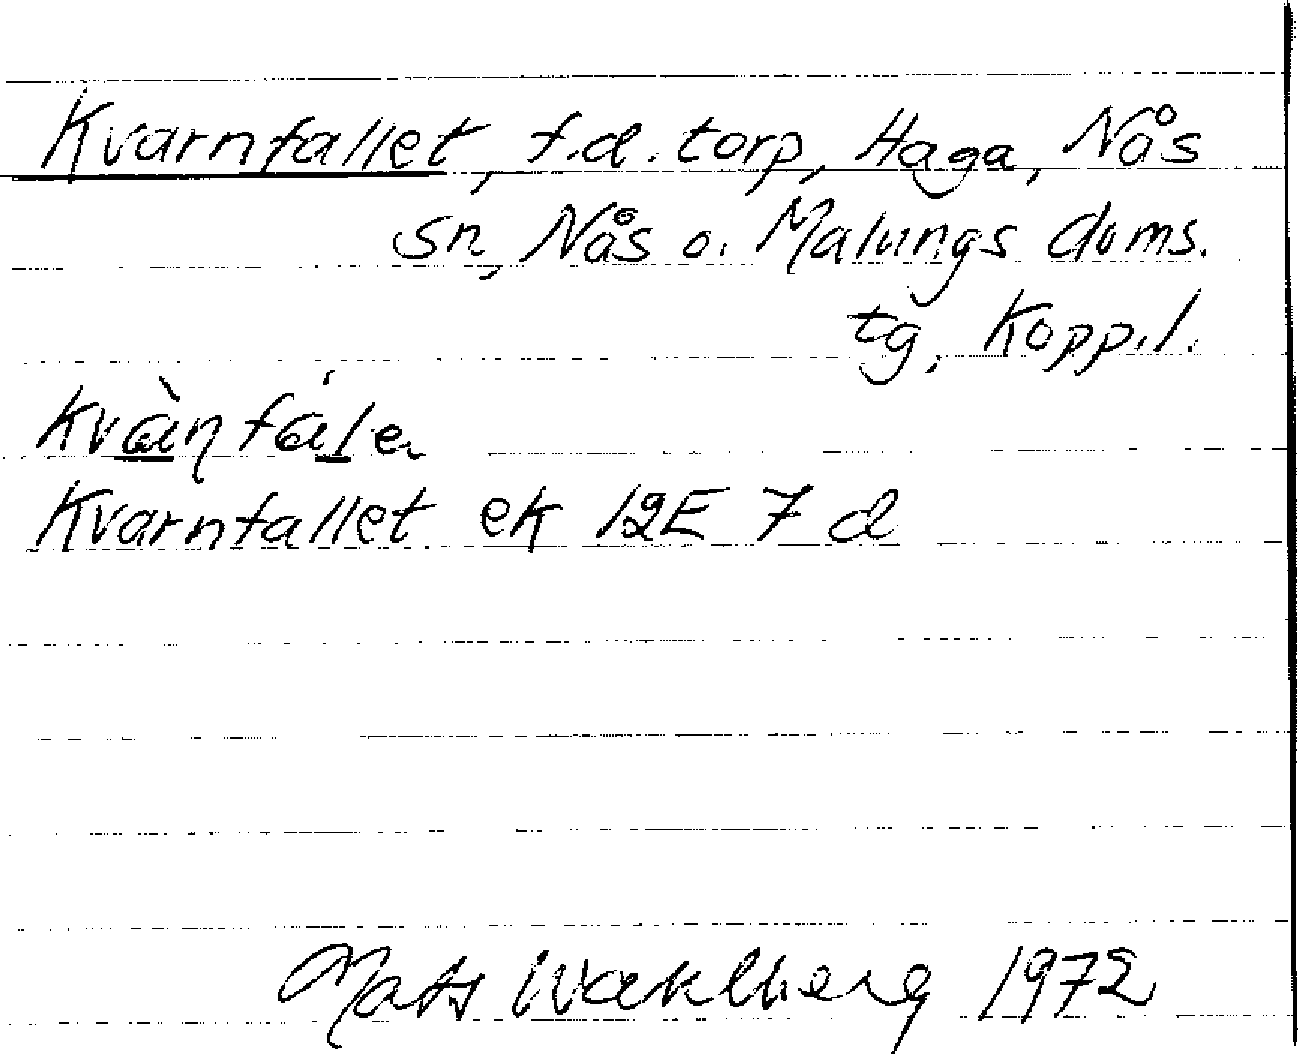 Kvarnfallet, f.d. torp, Haga, Nås
sn, Nås o. Malungs doms.
tg, Kopp.l.
Kvarnfallet ek 12E 7d
Mats Wahlberg 1972